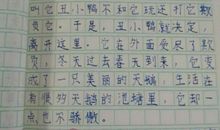 叫它丑小鸭不和它玩还打它欺
负它。于是,丑小鸭就决定,
离开这里。它在外面受尽了欺
负,冬天过去春天到来,它变
成了一只美丽的天鹅,生活在
有很多天鹅的池塘里,它却一
点也不骄傲。